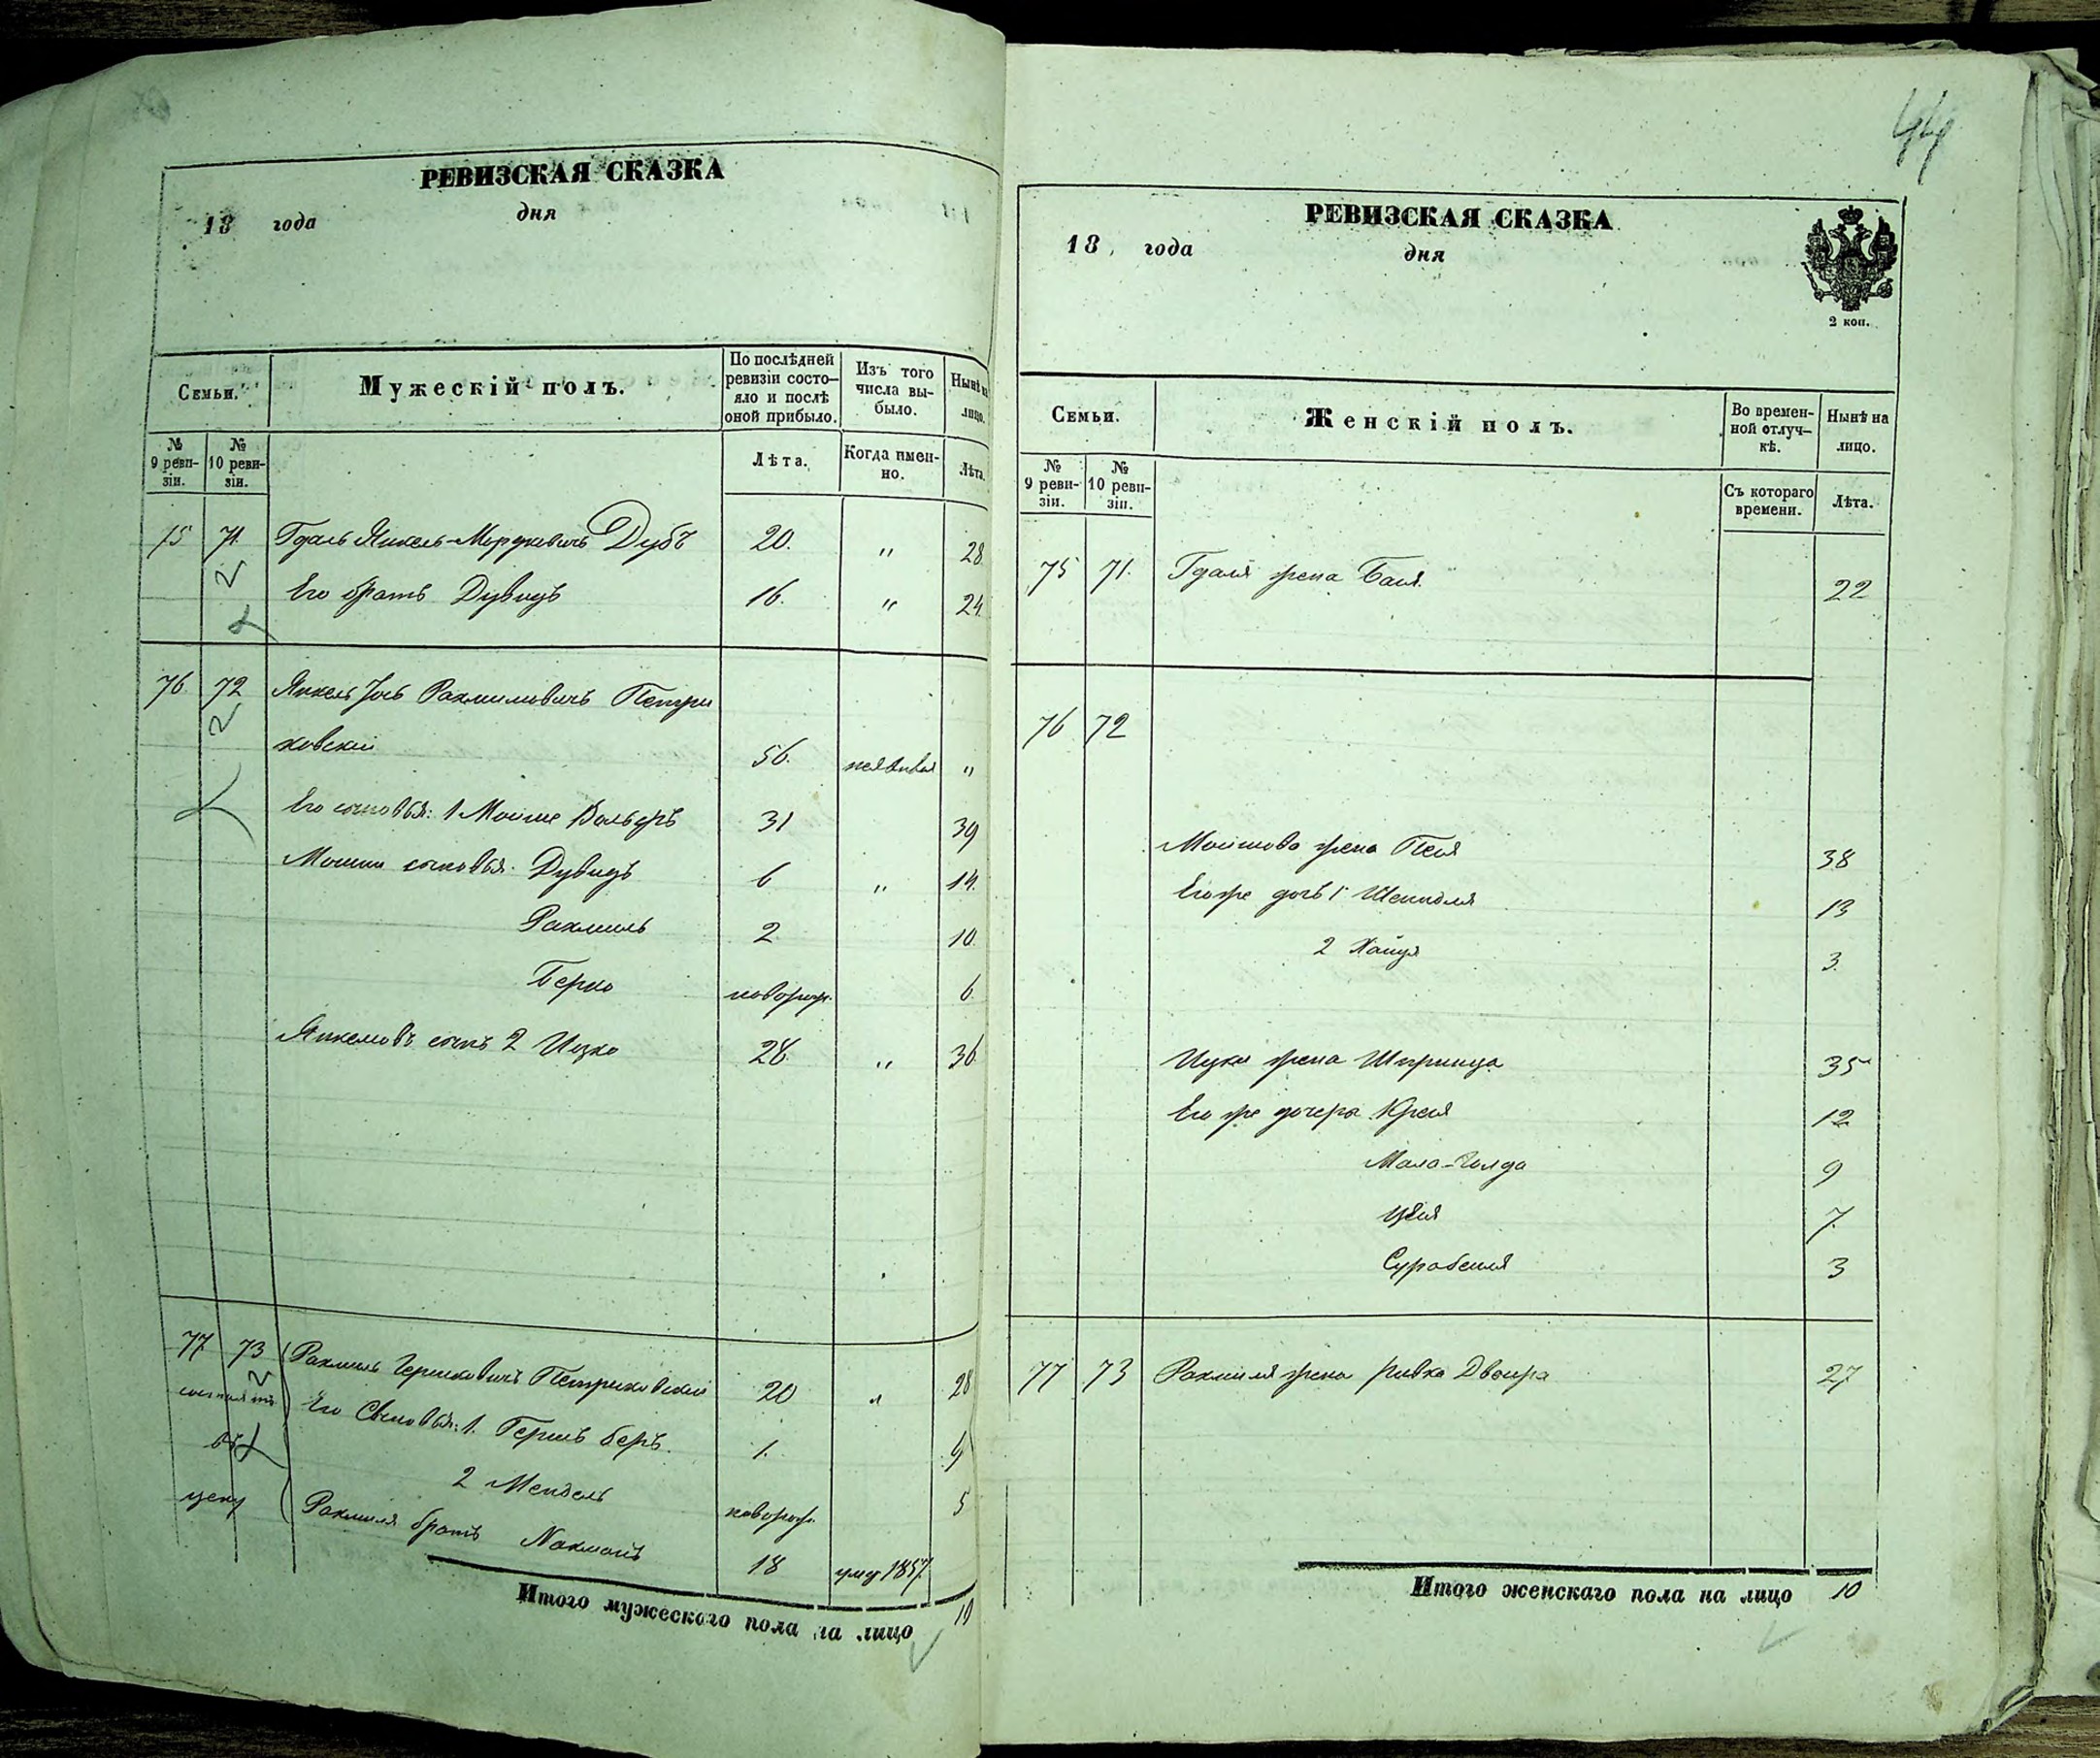 РЕВИЗСКАЯ СКАЗКА
18 года дня
Семьи.
Мужескій полъ.
По послѣдней ревизіи состо-яло и послѣ оной прибыло.
Изъ того числа вы-было.
Нынѣ на лицо.
№ 9 реви-зіи.
№ 10 реви-зіи.
Лѣта.
Когда имен-но.
Лѣта.
75 71. Гдаль Янкель-Мордковичъ Дубъ 20. " 28.
2 Его братъ Дувидъ 16. " 24.
76. 72 Янкель Рахмиловичъ Петри
2 ковскій 56. "
Его сыновья: 1 Мойше Вольфъ 31 39
Мошки сыновья. Дувидъ 6 " 14.
Рахмиль 2 10.
Берко новорож. 6.
Янкелевъ сынъ 2 Ицко 28. " 36
77 73 Рахмиль Гершковичъ Петриковскій 20 " 28
2 Его Сыновья: 1. Гершъ беръ. 1. 9
2 Мендель новорож. 5
Рахмиля братъ Нахманъ 18 умер 1857
Итого мужескаго пола на лицо 10
44
РЕВИЗСКАЯ СКАЗКА
18 года дня
2 коп.
Семьи.
Женскій полъ.
Во времен-ной отлуч-кѣ.
Нынѣ на лицо.
№ 9 реви-зіи.
№ 10 реви-зіи.
Съ котораго времени.
Лѣта.
75 71. Гдаля жена Бася 22
76 72
Мошкова жена Песя 38
Его же дочь 1 13
2 Хайця 3.
Ицки жена Шпринца 35
Его же дочери 12
Мала-Голда 9
7.
Сурабейля 3
77 73 Рахмиля жена Ривка Двейра 27
Итого женскаго пола на лицо 10